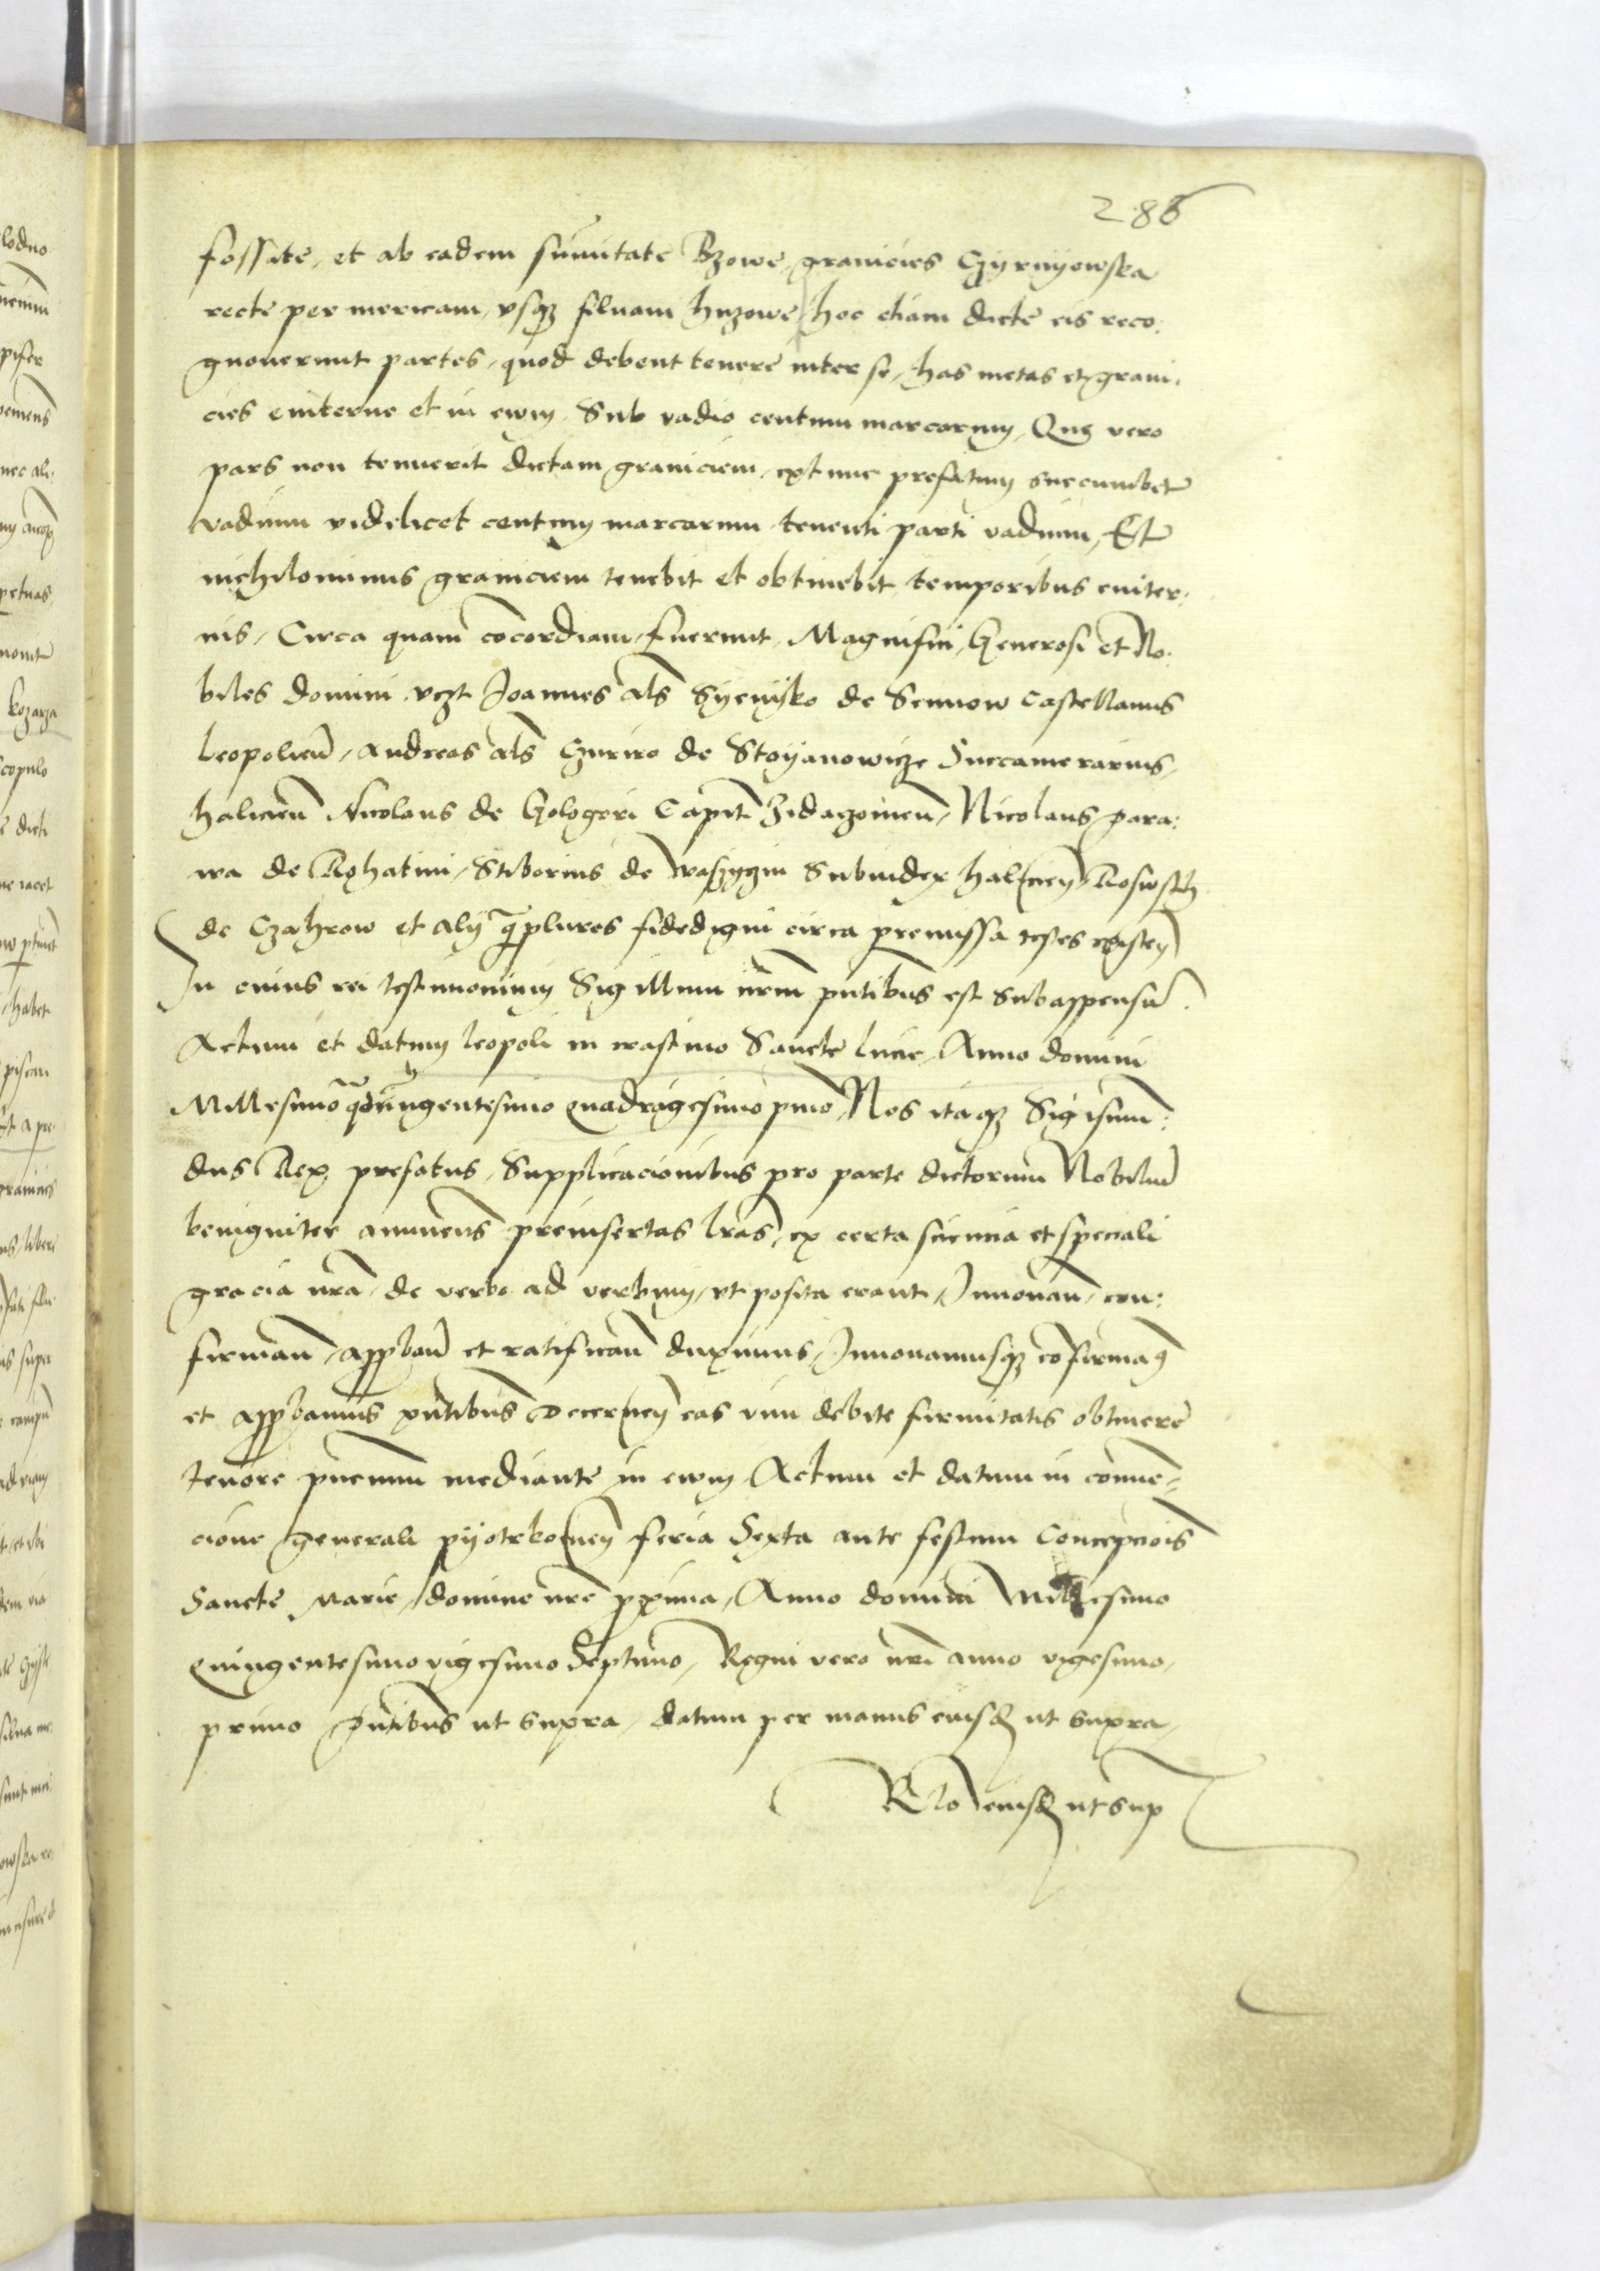 286
fossate, et ab eadem sumitate Bzowe, granicies Czyrnyowska
recte per mericam, usq silvam hnzowe hoc etiam dicte eis reco:
gnoverunt partes, quod debent tenere inter se, has metas et grani,
cies eviterne et in evum, Sub vadio centum marcarum, Que vero
pars non tenuerit dictam graniciem, extunc prefatum succumbet
vadium videlicet centum marcarum tenenti parti vadium, Et
nichilominus graniciem tenebit et obtinebit temporibus eviter,
nis, Circa quam cocordiam, fuerunt, Magnifici, Generosi et No:
biles domini vczt Joannes als Syenyko de Sennow Castellanus
leopolien, Andreas als de Stoyanowicze Succamerarius
halicien Nicolaus de Gologori Capit Zidaczowien, Nicolaus para:
wa de Rohatini, Stiborius de Subiudex halicien
de Czahrow et alij qplures fidedigni circa premissa testes existen
In cuius rei testimonium Sigillum nrm pntibus est Subappensu.
Actum et datum leopoli in crastino Sancte lucie, Anno domini
Millesimo qdringentesimo quadragesimo pmo, Nos itaq Sigismun:
dus Rex, prefatus, Supplicacionibus pro parte dictorum Nobiliu
benigniter annuens preinsertas lras, ex certa sciencia et speciali
gracia nra, de verbo ad verbum, ut posita erant, Innovan, con:
firman, appban et ratifican duximus, Innovamusq cofirmaq
et appbamus pntibus Decernen eas vim debite firmitatis obtinere
tenore pncium mediante in evum, Actum et datum in conven,
cione generali pyotrkovien feria Sexta ante festum Concepciois
Sancte Marie, domine nre pxima, Anno domini Millesimo
quingentesimo vigesimo Septimo, Regni vero nri anno vigesimo,
primo, Pntibus ut supra, datum per manus eiusd ut supra,
Rlo eiusd ut sup